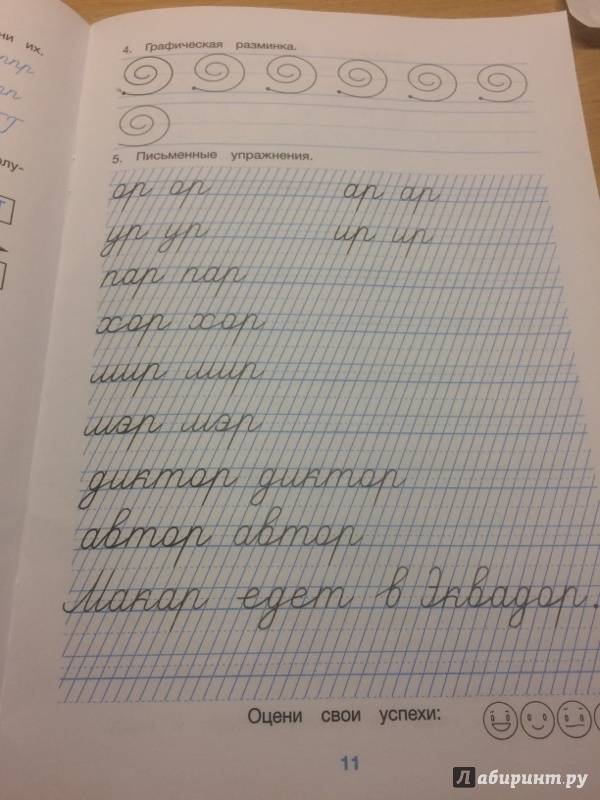 ни их.
олу-
4. Графическая разминка.
5. Письменные упражнения.
ор ор ар ар
ур ур ир ир
пар пар
хор хор
мир мир
мэр мэр
диктор диктор
автор автор
Макар едет в Эквадор.
Оцени свои успехи:
11
Лабиринт.ру